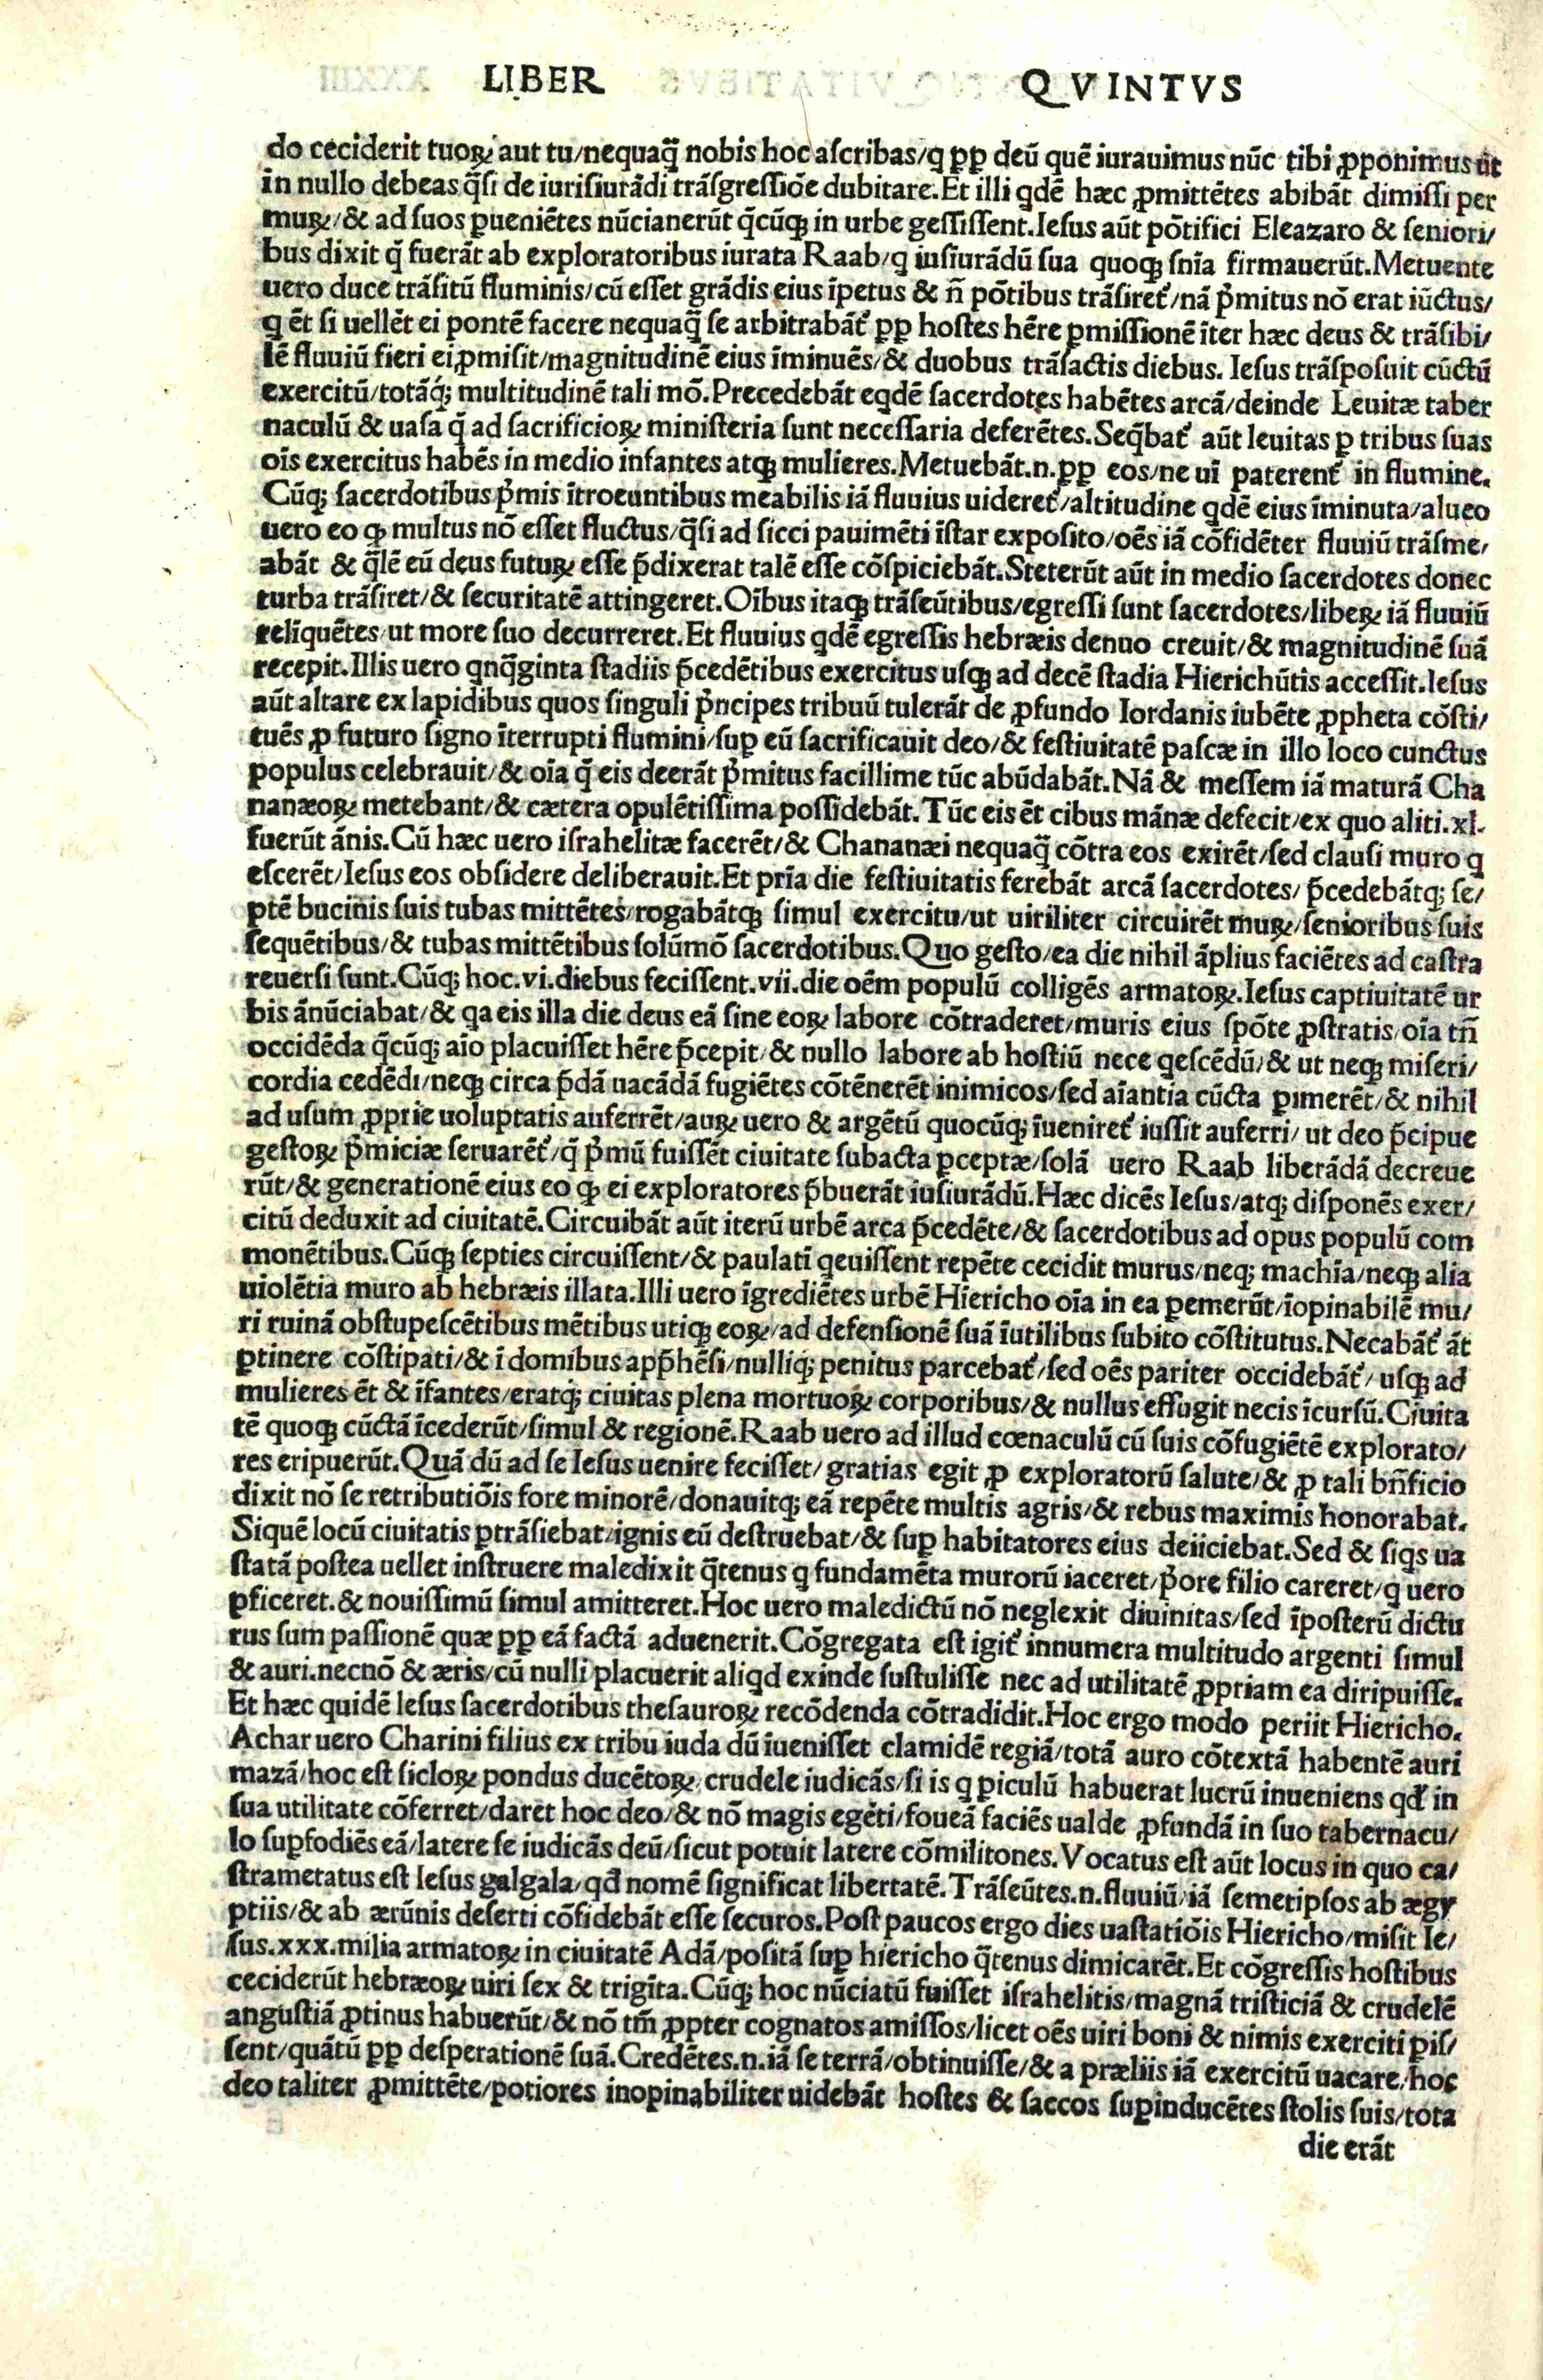 LIBER QVINTVS
do ceciderit tuoꝝ/aut tu/nequaq̃ nobis hoc ascribas/q ꝓp deũ quẽ iurauimus nũc tibi ꝓponimus ut
in nullo debeas q̃si de iurisiurãdi trãsgressiõe dubitare.Et illi qdẽ hæc ꝓmittẽtes abibãt dimissi per
muꝝ/& ad suos ꝑueniẽtes nũcianerũt q̃cũqꝫ in urbe gessissent.Iesus aũt põtifici Eleazaro & seniori/
bus dixit q̃ fuerãt ab exploratoribus iurata Raab/q iusiurãdũ sua quoqꝫ snĩa firmauerũt.Metuente
uero duce trãsitũ fluminis/cũ esset grãdis eius ĩpetus & ñ põtibus trãsiret᷑/nã p̃mitus nõ erat iũctus/
q ẽt si uellẽt ei pontẽ facere nequaq̃ se arbitrabãt᷑ ꝓp hostes hẽre ꝑmissionẽ ĩter hæc deus & trãsibi/
lẽ fluuiũ fieri ei ꝓmisit/magnitudinẽ eius ĩminuẽs/& duobus trãsactis diebus. Iesus trãsposuit cũctũ
exercitũ/totãqꝫ multitudinẽ tali mõ.Precedebãt eqdẽ sacerdotes habẽtes arcã/deinde Leuitæ taber
naculũ & uasa q̃ ad sacrificioꝝ ministeria sunt necessaria deferẽtes.Seq̃bat᷑ aũt leuitas ꝑ tribus suas
oĩs exercitus habẽs in medio infantes atqꝫ mulieres.Metuebãt.n.ꝓp eos/ne uĩ paterent᷑ in flumine.
Cũqꝫ sacerdotibus p̃mis ĩtroeuntibus meabilis iã fluuius uideret᷑/altitudine qdẽ eius ĩminuta/alueo
uero eo ꝙ multus nõ esset fluctus/q̃si ad sicci pauimẽti ĩstar exposito/oẽs iã cõfidẽter fluuiũ trãsme/
abãt & q̃lẽ eũ deus futuꝝ esse p̃dixerat talẽ esse cõspiciebãt.Steterũt aũt in medio sacerdotes donec
turba trãsiret/& securitatẽ attingeret.Oĩbus itaqꝫ trãseũtibus/egressi sunt sacerdotes/libeꝝ iã fluuiũ
relĩquẽtes/ut more suo decurreret.Et fluuius qdẽ egressis hebræis denuo creuit/& magnitudinẽ suã
recepit.Illis uero qnq̃ginta stadiis p̃cedẽtibus exercitus usqꝫ ad decẽ stadia Hierichũtis accessit.Iesus
aũt altare ex lapidibus quos singuli p̃ncipes tribuũ tulerãt de ꝓfundo Iordanis iubẽte ꝓpheta cõsti/
tuẽs ꝓ futuro signo ĩterrupti flumini/suꝑ eũ sacrificauit deo/& festiuitatẽ pascæ in illo loco cunctus
populus celebrauit/& oĩa q̃ eis deerãt p̃mitus facillime tũc abũdabãt.Nã & messem iã maturã Cha
nanæoꝝ metebant/& cætera opulẽtissima possidebãt.Tũc eis ẽt cibus mãnæ defecit/ex quo aliti.xl.
fuerũt ãnis.Cũ hæc uero israhelitæ facerẽt/& Chananæi nequaq̃ cõtra eos exirẽt/sed clausi muro q
escerẽt/Iesus eos obsidere deliberauit.Et prĩa die festiuitatis ferebãt arcã sacerdotes/p̃cedebãtqꝫ se/
ptẽ bucinis suis tubas mittẽtes/rogabãtqꝫ simul exercitu/ut uiriliter circuirẽt muꝝ/senioribus suis
sequẽtibus/& tubas mittẽtibus solũmõ sacerdotibus.Quo gesto/ea die nihil ãplius faciẽtes ad castra
reuersi sunt.Cũqꝫ hoc.vi.diebus fecissent.vii.die oẽm populũ colligẽs armatoꝝ.Iesus captiuitatẽ ur
bis ãnũciabat/& qa eis illa die deus eã sine eoꝝ labore cõtraderet/muris eius spõte ꝓstratis/oĩa tñ
occidẽda q̃cũqꝫ aĩo placuisset hẽre p̃cepit/& nullo labore ab hostiũ nece qescẽdũ/& ut neqꝫ miseri/
cordia cedẽdi/neqꝫ circa p̃dã uacãdã fugiẽtes cõtẽnerẽt inimicos/sed aĩantia cũcta ꝑimerẽt/& nihil
ad usum ꝓprie uoluptatis auferrẽt/auꝝ uero & argẽtũ quocũqꝫ ĩueniret᷑ iussit auferri/ut deo p̃cipue
gestoꝝ p̃miciæ seruarẽt᷑/q̃ p̃mũ fuissẽt ciuitate subacta ꝑceptæ/solã uero Raab liberãdã decreue
rũt/& generationẽ eius eo ꝙ ei exploratores p̃buerãt iusiurãdũ.Hæc dicẽs Iesus/atqꝫ disponẽs exer/
citũ deduxit ad ciuitatẽ.Circuibãt aũt iterũ urbẽ arca p̃cedẽte/& sacerdotibus ad opus populũ com
monẽtibus.Cũqꝫ septies circuissent/& paulatĩ qeuissent repẽte cecidit murus/neqꝫ machĩa/neqꝫ alia
uiolẽtia muro ab hebræis illata.Illi uero ĩgrediẽtes urbẽ Hiericho oĩa in ea ꝑemerũt/ĩopinabilẽ mu/
ri ruinã obstupescẽtibus mẽtibus utiqꝫ eoꝝ/ad defensionẽ suã ĩutilibus subito cõstitutus.Necabãt᷑ ãt
ꝑtinere cõstipati/& ĩ domibus app̃hẽsi/nulliqꝫ penitus parcebat᷑/sed oẽs pariter occidebãt᷑/usqꝫ ad
mulieres ẽt & ĩfantes/eratqꝫ ciuitas plena mortuoꝝ corporibus/& nullus effugit necis ĩcursũ.Ciuita
tẽ quoqꝫ cũctã ĩcederũt/simul & regionẽ.Raab uero ad illud cœnaculũ cũ suis cõfugiẽtẽ explorato/
res eripuerũt.Quã dũ ad se Iesus uenire fecisset/gratias egit ꝓ exploratorũ salute/& ꝓ tali bñficio
dixit nõ se retributiõis fore minorẽ/donauitqꝫ eã repẽte multis agris/& rebus maximis honorabat.
Siquẽ locũ ciuitatis ꝑtrãsiebat/ignis eũ destruebat/& suꝑ habitatores eius deiiciebat.Sed & siqs ua
statã postea uellet instruere maledixit q̃tenus q fundamẽta murorũ iaceret/p̃ore filio careret/q uero
ꝑficeret.& nouissimũ simul amitteret.Hoc uero maledictũ nõ neglexit diuinitas/sed ĩposterũ dictu
rus sum passionẽ quæ ꝓp eã factã aduenerit.Cõgregata est igit᷑ innumera multitudo argenti simul
& auri.necnõ & æris/cũ nulli placuerit aliqd exinde sustulisse nec ad utilitatẽ ꝓpriam ea diripuisse.
Et hæc quidẽ Iesus sacerdotibus thesauroꝝ recõdenda cõtradidit.Hoc ergo modo periit Hiericho.
Achar uero Charini filius ex tribu iuda dũ ĩuenisset clamidẽ regiã/totã auro cõtextã habentẽ auri
mazã/hoc est sicloꝝ pondus ducẽtoꝝ/crudele iudicãs/si is q ꝑiculũ habuerat lucrũ inueniens qd̃ in
sua utilitate cõferret/daret hoc deo/& nõ magis egẽti/foueã faciẽs ualde ꝓfundã in suo tabernacu/
lo suꝑfodiẽs eã/latere se iudicãs deũ/sicut potuit latere cõmilitones.Vocatus est aũt locus in quo ca/
strametatus est Iesus galgala/qd̃ nomẽ significat libertatẽ.Trãseũtes.n.fluuiũ/iã semetipsos ab ægy
ptiis/& ab ærũnis deserti cõfidebãt esse securos.Post paucos ergo dies uastatiõis Hiericho/misit Ie/
sus.xxx.milia armatoꝝ in ciuitatẽ Adã/positã suꝑ hiericho q̃tenus dimicarẽt.Et cõgressis hostibus
ceciderũt hebræoꝝ uiri sex & trigĩta.Cũqꝫ hoc nũciatũ fuisset israhelitis/magnã tristiciã & crudelẽ
angustiã ꝓtinus habuerũt/& nõ tm̃ ꝓpter cognatos amissos/licet oẽs uiri boni & nimis exerciti ꝑis/
sent/quãtũ ꝓp desperationẽ suã.Credẽtes.n.iã se terrã/obtinuisse/& a præliis iã exercitũ uacare/hoc
deo taliter ꝓmittẽte/potiores inopinabiliter uidebãt hostes & saccos suꝑinducẽtes stolis suis/tota
die erãt